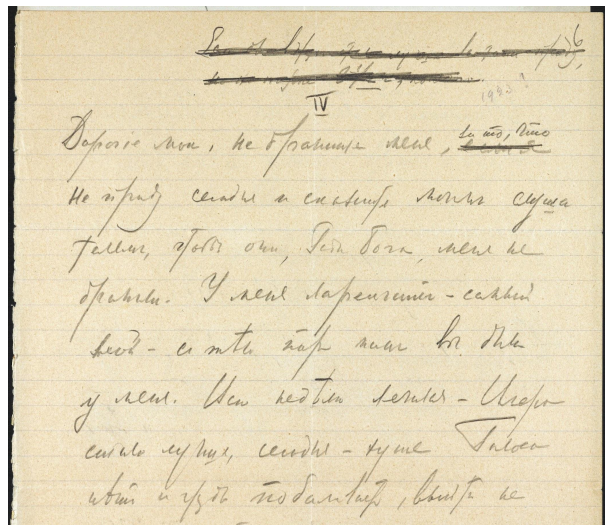 6
1923 ?
IV
Дорогіе мои, не браните меня, за то, что
не приду сегодня и скажите моимъ слуша
телямъ, чтобы они, Ради Бога, меня не
бранили. У меня ларингитъ - самый
злой - съ тѣхъ поръ какъ вы были
у меня. Всю недѣлю лечился - Вчера
стало лучше, сегодня - хуже Голоса
нѣтъ и грудь побаливаетъ, выйти не